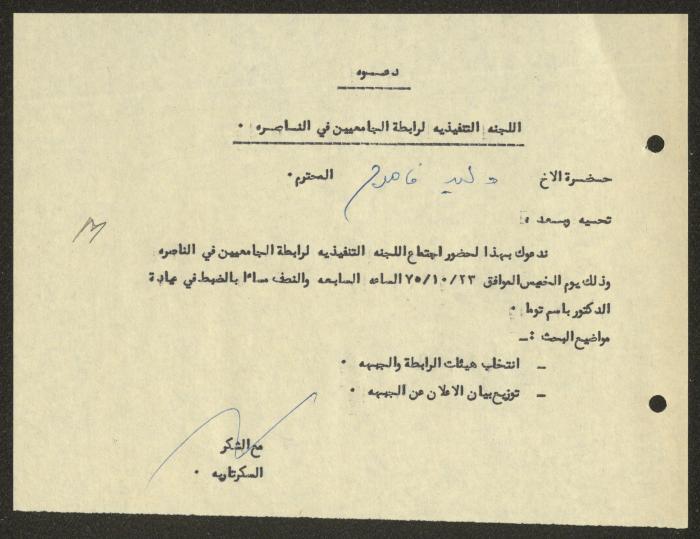 دعـــوه
اللجنه التنفيذيه لرابطة الجامعيين في النــاصــره ٠
حـضـرة الاخ وليد فاهوم المحترم٠
تحـيـه وبـعـد :
ندعوك بـهـذا لحضور اجتماع اللجنه التنفيذيه لرابطة الجامعيين في الناصره
وذلك يوم الخميس الموافق ٧٥/١٠/٢٣ الساعه السابعه والنصف مساءًا بالضبط في عيادة
الدكتور باسم توما ٠
مواضيع البحث :ــ
ــ انتخاب هيئات الرابطة والجبهه ٠
ــ توزيع بيان الاعلان عن الجبهه ٠
مع الشكر
السكرتاريه ٠